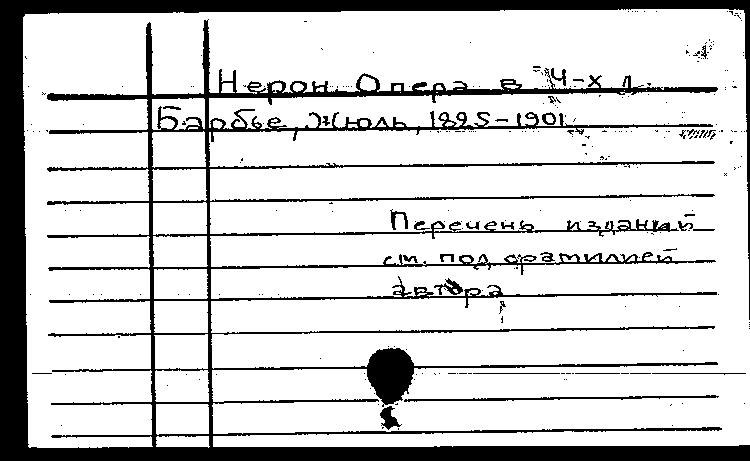 Нерон. Опера в 4-х д.
Барбье, Жюль, 1825-1901
Перечень изданий
см. под фамилией
автора